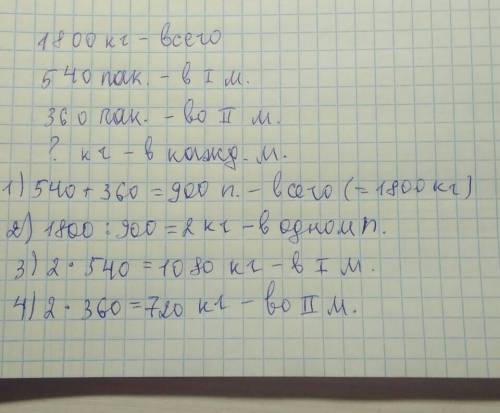 1800 кг - всего
540 пак. - в I м.
360 пак. - во II м.
? кг - в кажд. м.
1) 540 + 360 = 900 п. - всего (= 1800 кг)
2) 1800 : 900 = 2 кг - в одном п.
3) 2 · 540 = 1080 кг - в I м.
4) 2 · 360 = 720 кг - во II м.